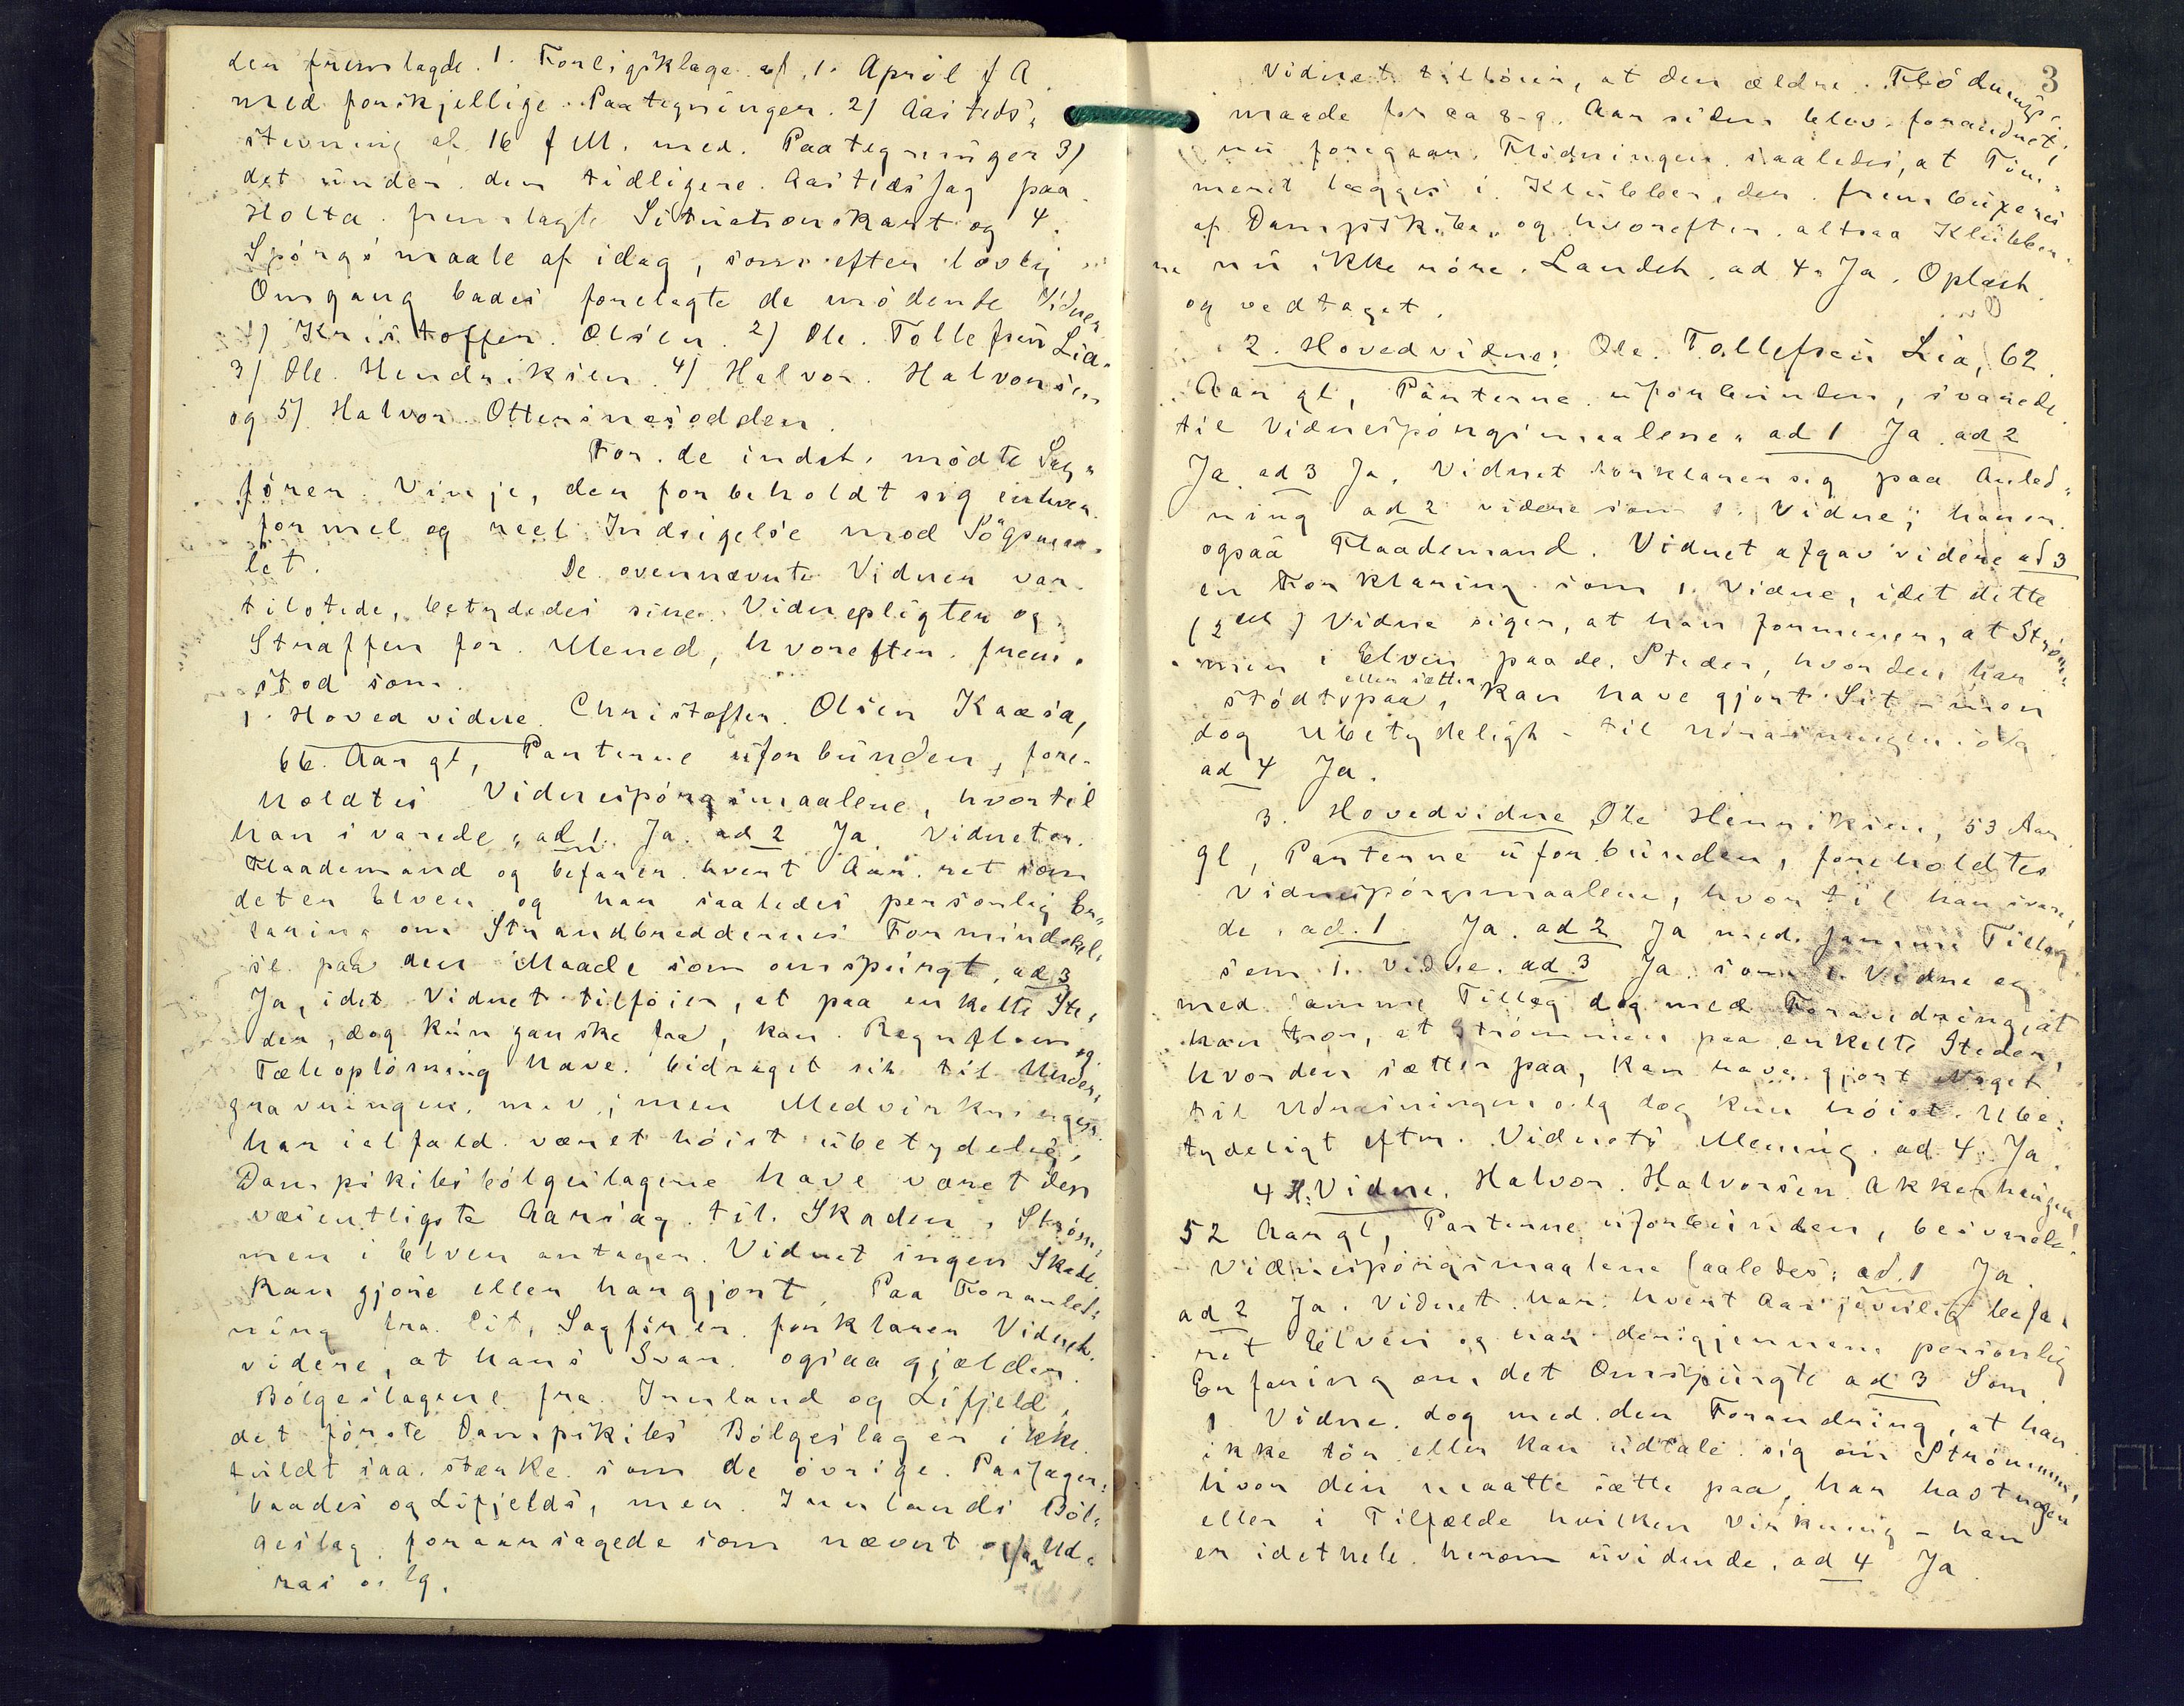 den fremlagde. 1. Forligsklage af 1. April f A
med forskjellige Paategninger. 2) Aasteds„
stevning af 16 f M. med Paategninger 3)
det under den tidligere Aastedssag paa
Holta fremlagte Situationskart og 4.
Spørgsmaale af idag, som efter lovlig
Omgang bades forelagte de mødende Vidner
1) Kristoffer Olsen. 2) Ole Tollefsen Lia.
3) Ole Hendriksen 4) Halvor Halvorsen
og 5) Halvor Ottersnesodden.
For de indst. mødte Sag„
fører Vinje, der forbeholdt sig enhver
formel og reel Indsigelse mod Søgsmaa„
let. De ovennævnte Vidner var
tilstede, betydedes sine Vidnepligter og
Straffen for Mened, hvorefter frem„
stod som
1. Hovedvidne Christoffer Olsen Kaasa,
66 Aar gl, Parterne uforbunden, fore„
holdtes Vidnespørgsmaalene, hvortil
han svarede, ad 1. Ja. ad 2 Ja. Vidnet er
Flaademand og befarer hvert Aar ret som
det er Elven og har saaledes personlig Er„
faring om Strandbreddernes Formindskel„
se paa den Maade som omspurgt. ad 3
Ja, idet Vidnet tilføier, at paa enkelte Ste„
der, dog kun ganske faa, kan Regnflom og
Tæleopløsning have bidraget sit til Under„
gravningen m.v; men Medvirkningen
har ialfald været høist ubetydelig,
Dampskibsbølgeslagene have været den
væsentligste Aarsag til Skaden. Strøm„
men i Elven antager Vidnet ingen Skade
kan gjøre eller har gjort. Paa Foranled„
ning fra Cit, Sagfører forklarer Vidnet
videre, at hans Svar ogsaa gjælder
Bølgeslagene fra Inland og Lifjeld,
det første Dampskibs Bølgeslag er ikke
fuldt saa stærke som de øvrige Passager„
baades og Lifjelds, men Inlands Bøl„
geslag foraarsagede som nævnt ogsaa Ud„
ras o. lg.
3
Vidnet tilføier, at den ældre Flødnings„
maade for ca 8-9 Aar siden blev forandret;
nu foregaar Flødningen saaledes, at Tøm„
meret lægges i Klubber, der frembuxeres
af Dampskibe, og hvorefter altsaa Klubber„
ne nu ikke røre Landet. ad 4. Ja. Oplæst
og vedtaget.
2. Hovedvidne: Ole Tollefsen Lia, 62
Aar gl, Parterne uforbunden, svarede
til Vidnespørgsmaalene. ad 1 Ja. ad 2
Ja. ad 3 Ja. Vidnet forklarer sig paa Anled„
ning ad 2 videre som 1. Vidne; han er
ogsaa Flaademand. Vidnet afgav videre ad 3
en Forklaring som 1. Vidne, idet dette
(2det) Vidne siger, at han formener, at Strøm„
men i Elven paa de Steder, hvor den har
eller sætter
stødt paa, kan have gjort Sit – men
dog ubetydeligt – til Udrasningen o lg
ad 4 Ja.
3. Hovedvidne Ole Henriksen, 53 Aar
gl, Parterne uforbunden, foreholdtes
Vidnespørgsmaalene, hvortil han svare„
de. ad. 1 Ja. ad 2 Ja med samme Tillæg
som 1. Vidne. ad 3 Ja som 1. Vidne og
med samme Tillæg dog med Forandring, at
han tror, at Strømmen paa enkelte Steder,
hvor den sætter paa, kan have gjort Noget
til Udrasningen o. lg dog kun høist Ube„
tydeligt efter Vidnets Mening. ad 4. Ja.
4 H. Vidne. Halvor Halvorsen Akkerhaugen
52 Aar gl, Parterne uforbunden, besvarede
Vidnespørgsmaalene saaledes: ad. 1 Ja.
ad 2 Ja. Vidnet har hvert Aar jævnlig befa„
ret Elven og har derigjennem personlig
Erfaring om det Omspurgte ad 3 Som
1 Vidne. dog med den Forandring, at han
ikke tør eller kan udtale sig om Strømmen,
hvor den maatte sætte paa, har hast nogen
eller i Tilfælde hvilken Virkning – han
er idethele herom uvidende. ad 4 Ja